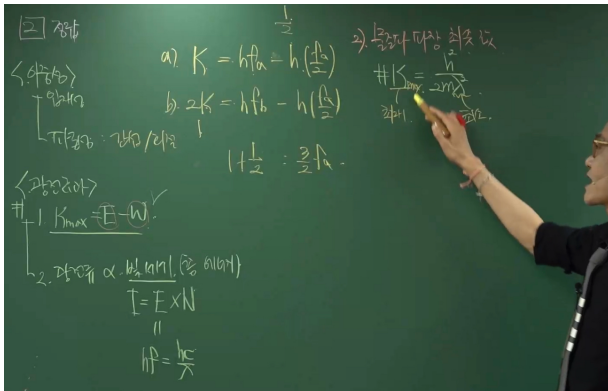 2 정답
<이중성>
입자성
파동성 : 간섭/회절
<광전효과>
# 1. Kmax = E - W
2. 광전류 α 빛의 세기 (총 에너지)
I = E × N
=
hf = hc/λ
1/2
a) K = hfa - h(fa/2)
b) 2K = hfb - h(fa/2)
1
1 + 1/2 : 3/2 fa.
2). 물질파 파장 최솟값
# Kmax = h²/2mλ²
최대.